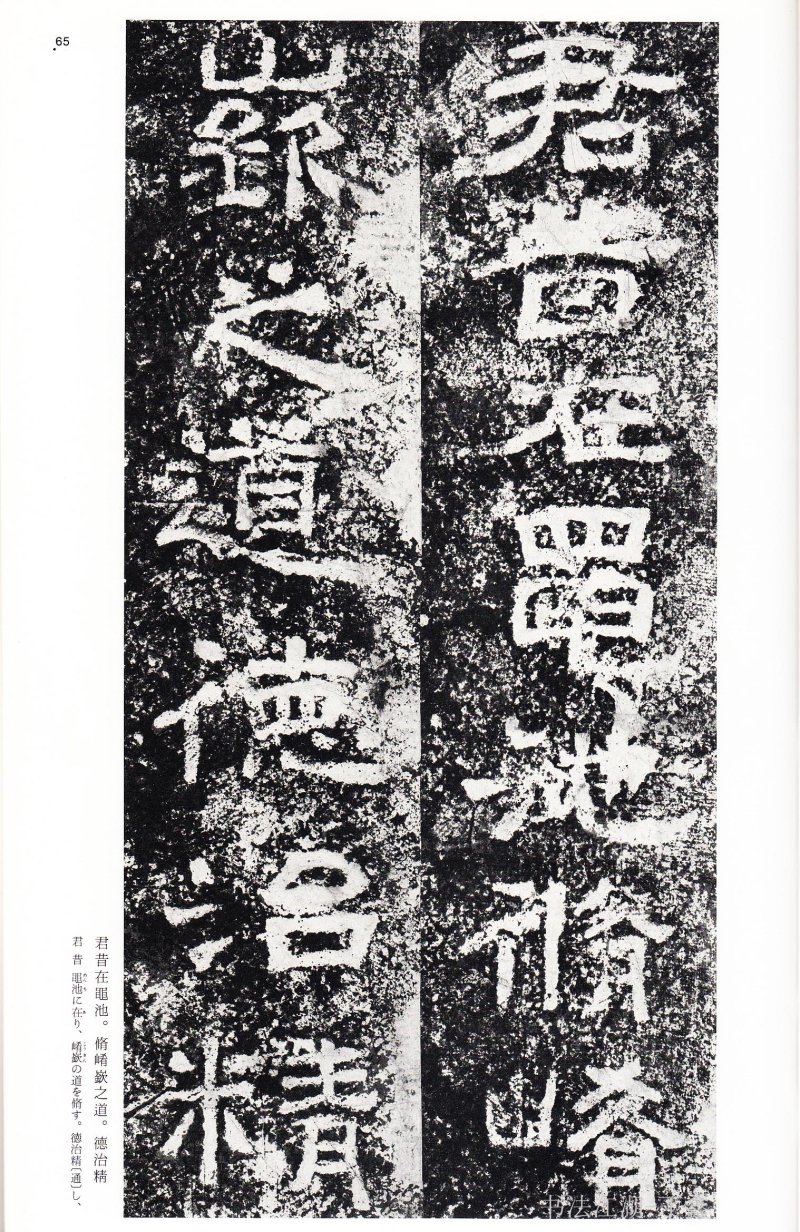 65
君昔在黽池脩崤
嶔之道德治精
君昔在黽池。脩崤嶔之道。德治精
君昔黽池に在り、崤嶔の道を脩す。德治精〔通〕し、
书法江湖